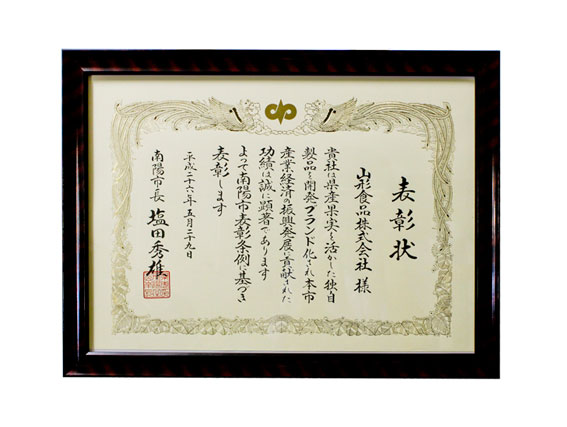 表彰状
山形食品株式会社 様
貴社は県産果実を活かした独自
製品を開発ブランド化され本市
産業経済の振興発展に貢献された
功績は誠に顕著であります
よって南陽市表彰条例に基づき
表彰します
平成二十六年五月二十九日
南陽市長 塩田秀雄